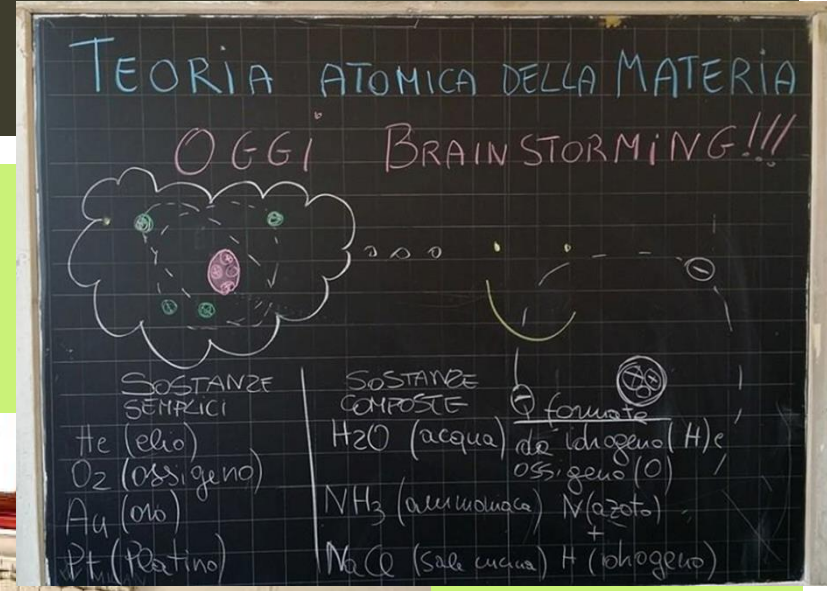 TEORIA ATOMICA DELLA MATERIA
OGGI BRAINSTORMING!!!
SOSTANZE
SEMPLICI
He (elio)
O2 (ossigeno)
Au (oro)
Pt (Platino)
SOSTANZE
COMPOSTE
H2O (acqua) formate
da idrogeno (H) e
ossigeno (O)
NH3 (ammoniaca) N (azoto)
+
NaCl (sale cucina) H (idrogeno)